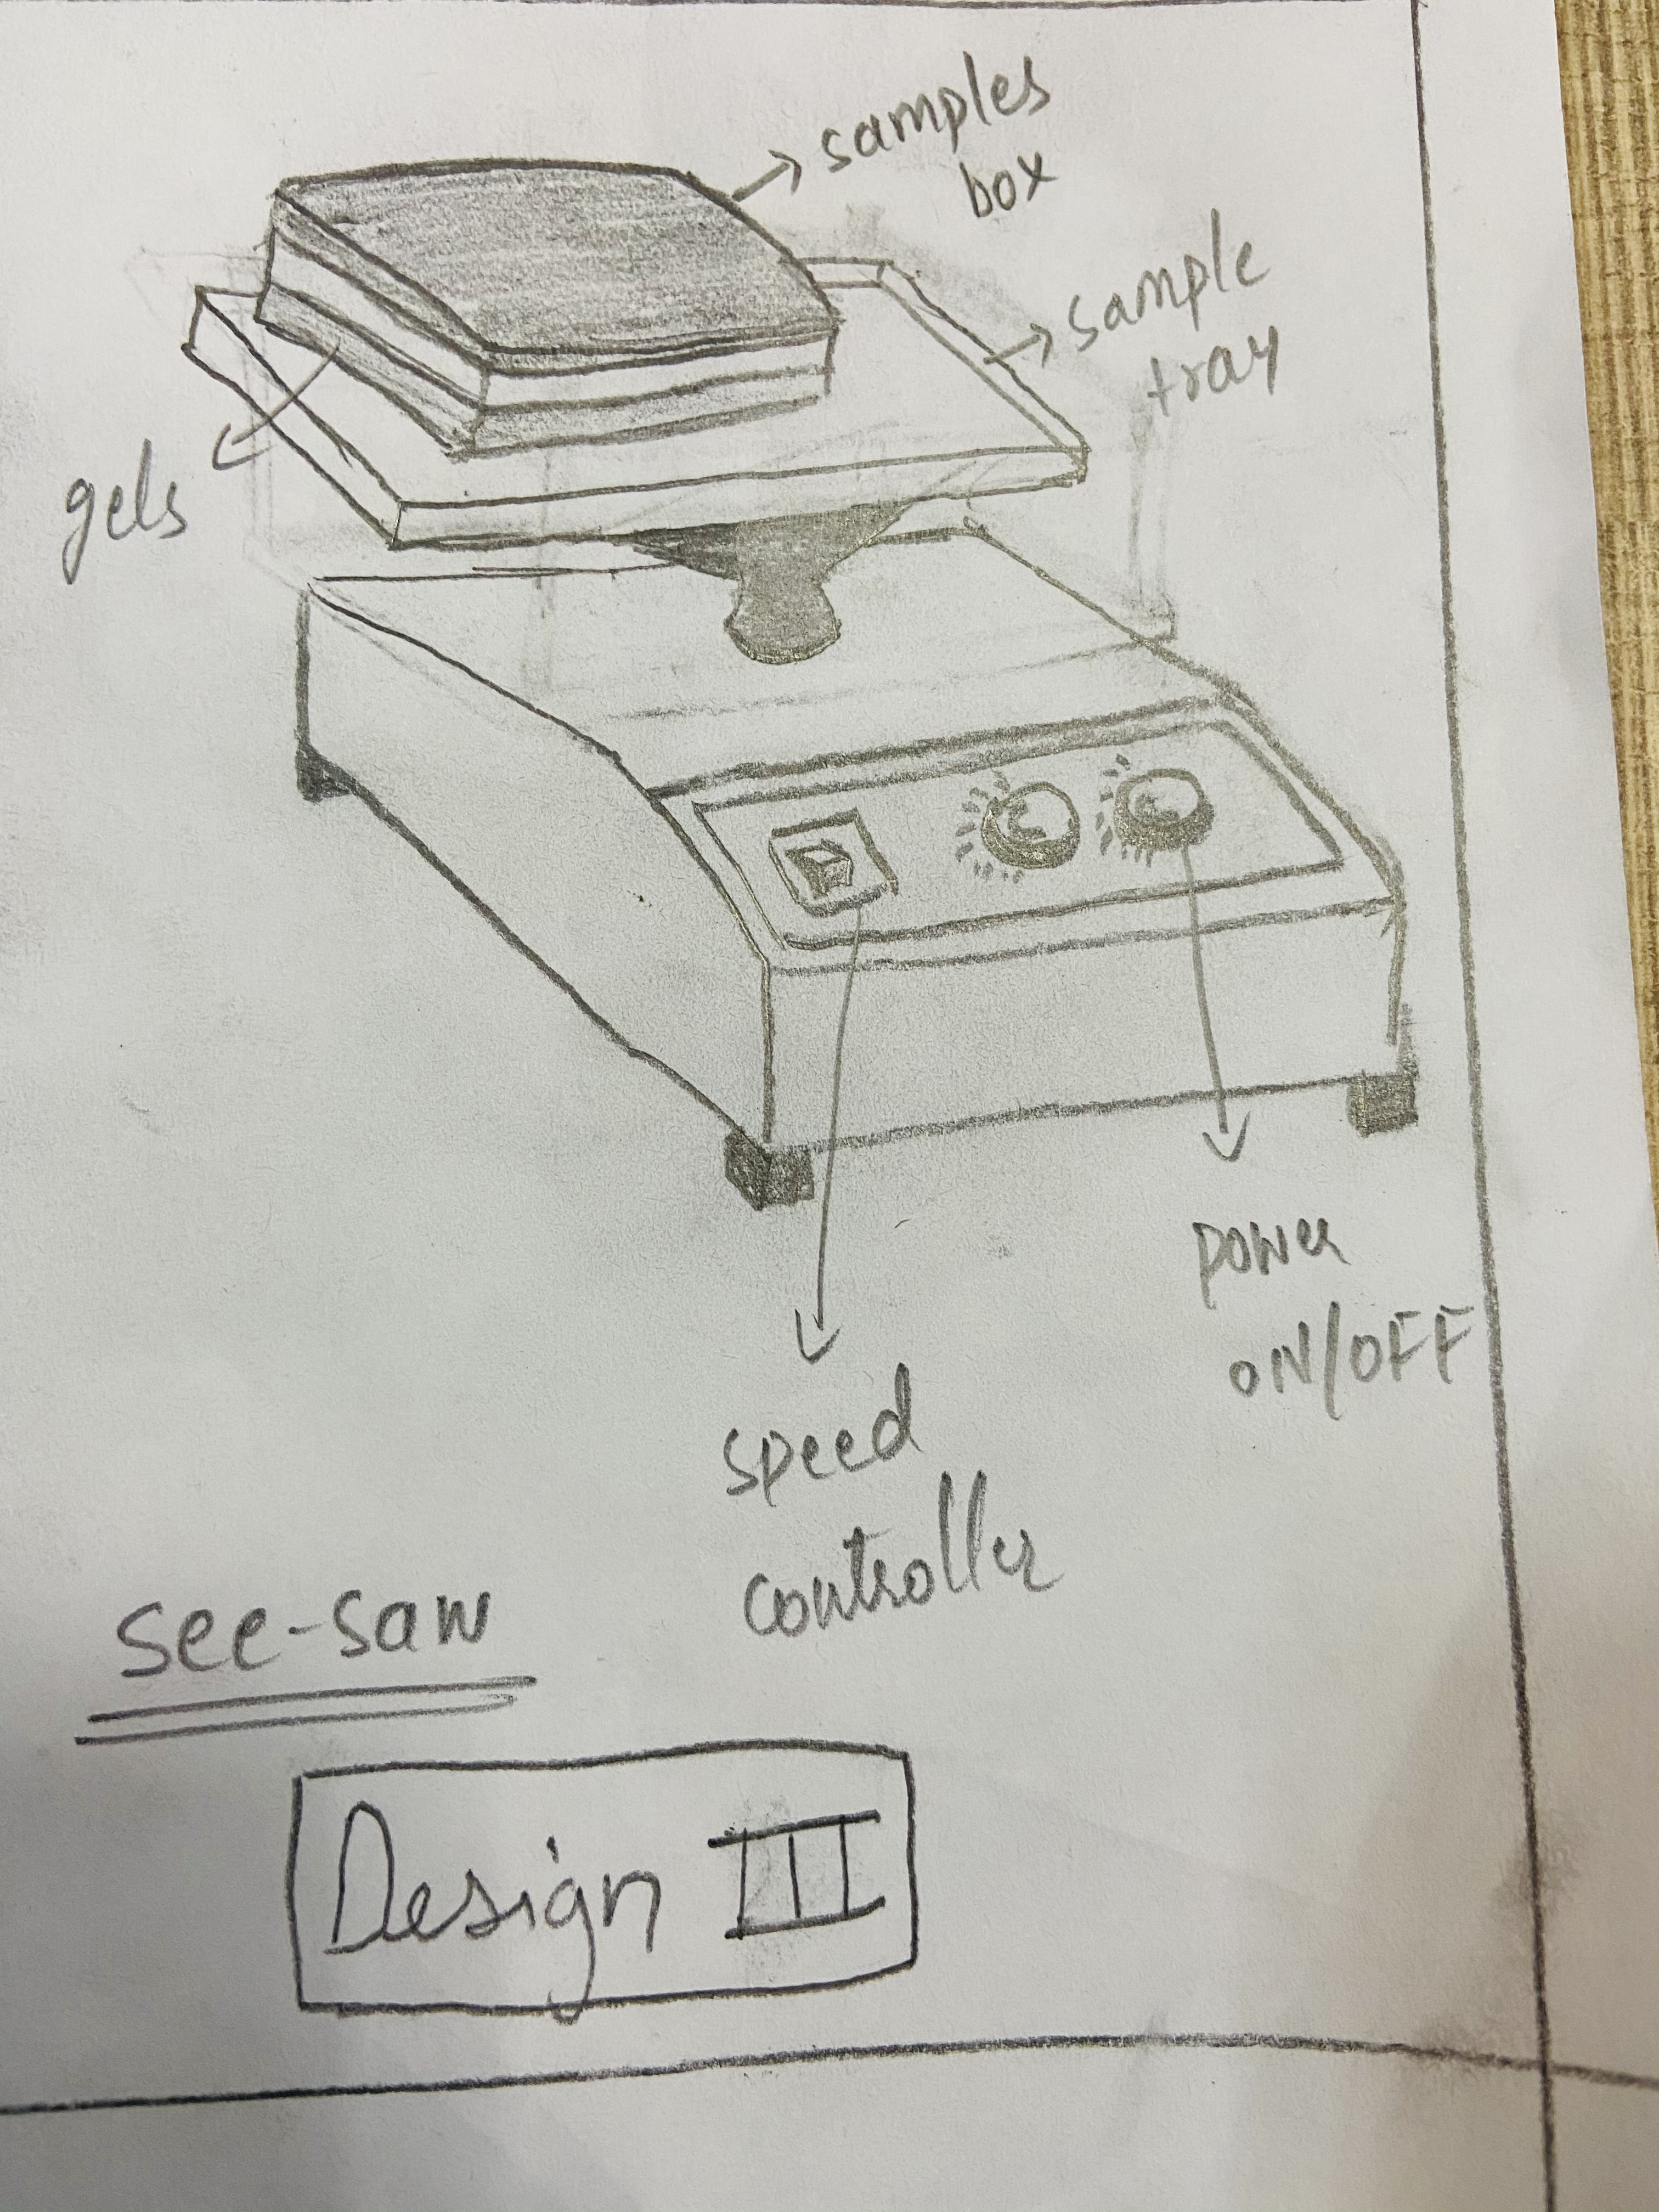 samples
box
sample
tray
gels
power
ON/OFF
speed
controller
see-saw
Design III